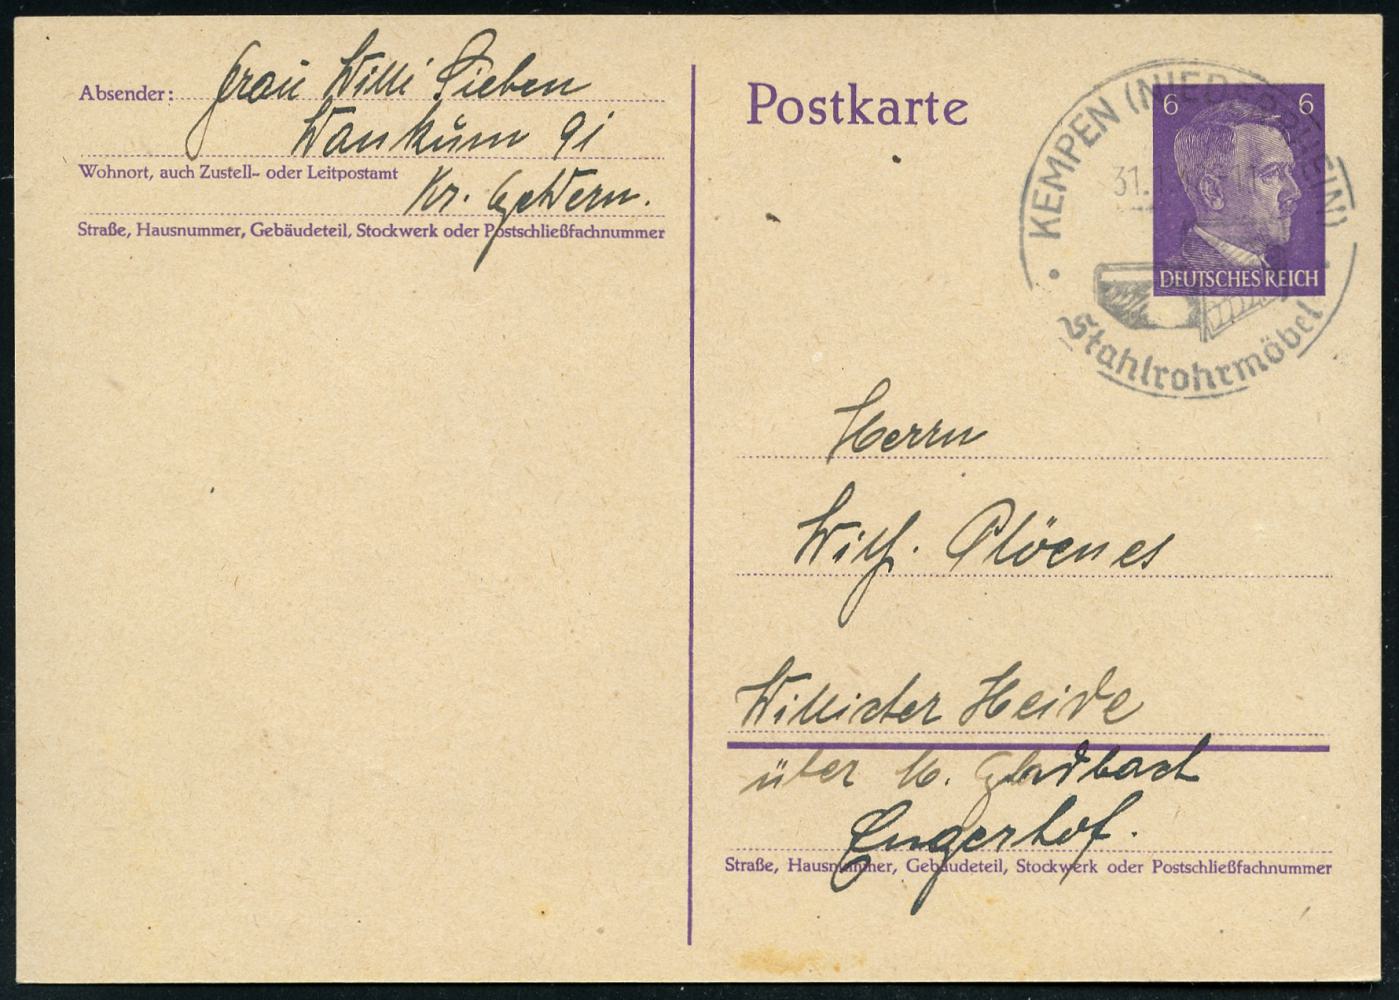 Absender: Frau Willi Sieben
Wankum 91
Wohnort, auch Zustell- oder Leitpostamt
Kr. Geldern.
Straße, Hausnummer, Gebäudeteil, Stockwerk oder Postschließfachnummer
Postkarte
KEMPEN (NIEDERRHEIN)
31.1
Stahlrohrmöbel
6 6
DEUTSCHES REICH
Herrn
Wilh. Plöenes
Willicher Heide
über M. Gladbach
Engerhof.
Straße, Hausnummer, Gebäudeteil, Stockwerk oder Postschließfachnummer